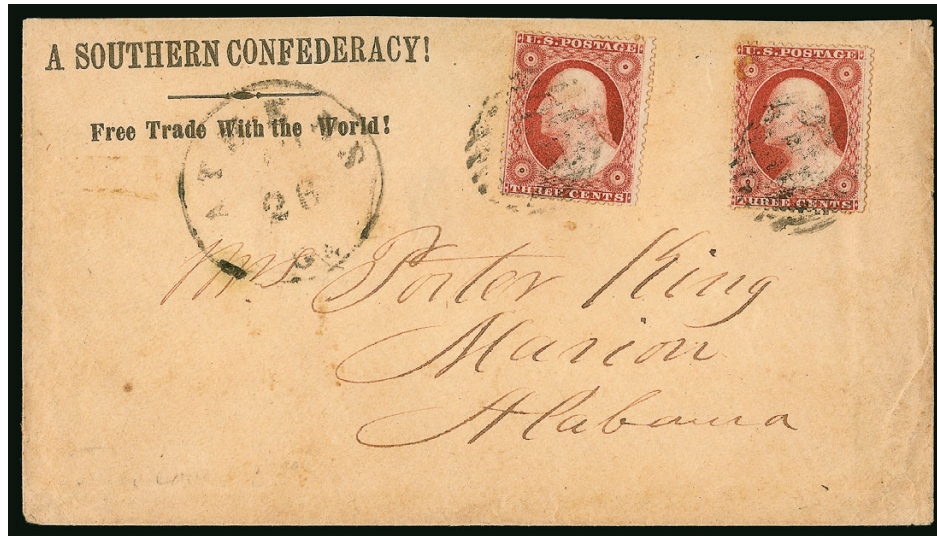 A SOUTHERN CONFEDERACY!
Free Trade With the World!
ATHENS
26
GA
U.S. POSTAGE
THREE CENTS
U.S. POSTAGE
THREE CENTS
Mrs Porter King
Marion
Alabama